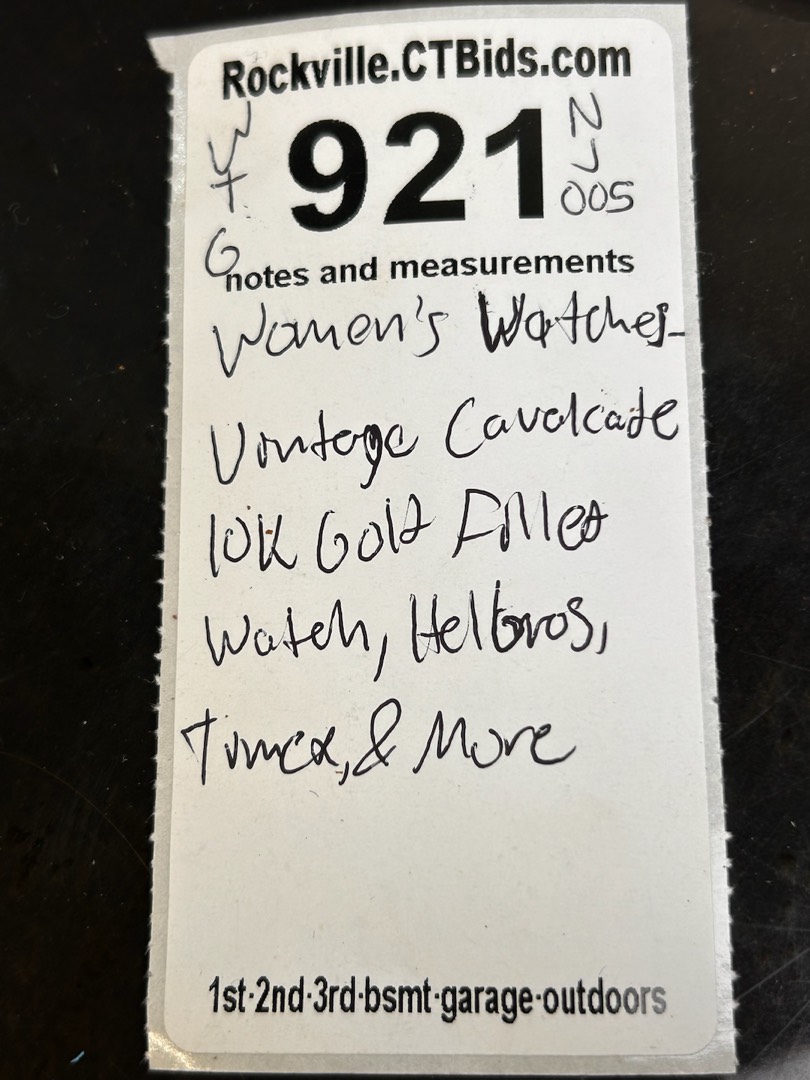 Rockville.CTBids.com
921
notes and measurements
Women's Watches-
Vintage Cavalcade
10K Gold Filled
Watch, Helbros,
Timex, & More
1st·2nd·3rd·bsmt·garage·outdoors